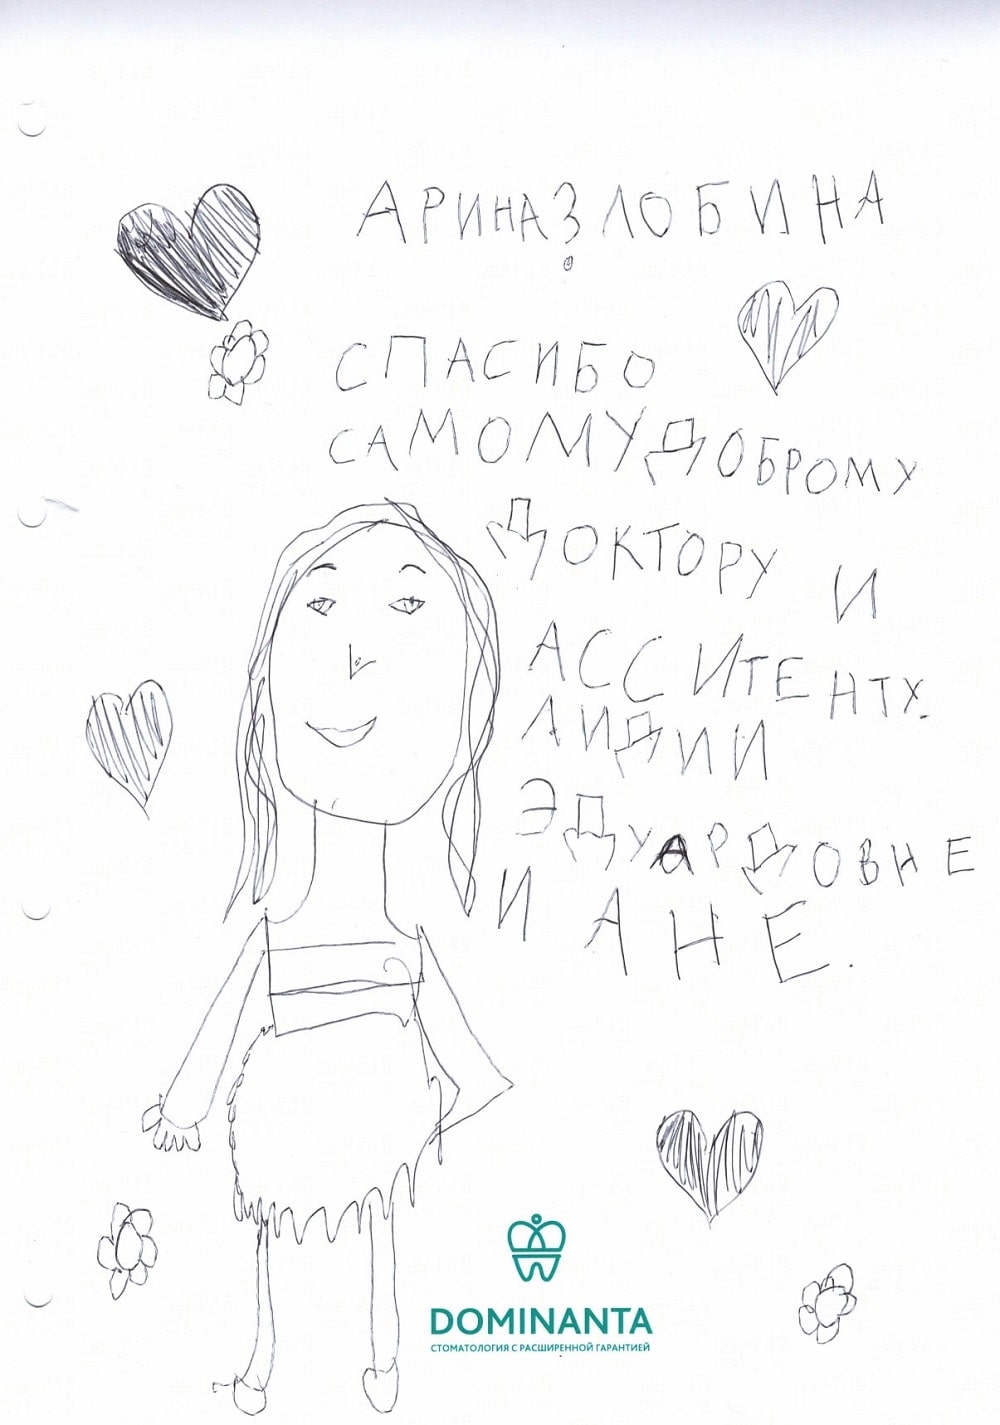 АРИНА ЗЛОБИНА
СПАСИБО
САМОМУ ДОБРОМУ
ДОКТОРУ И
АССИТЕНТУ.
ЛИДИИ
ЭДУАРДОВНЕ
И АНЕ.
DOMINANTA
СТОМАТОЛОГИЯ С РАСШИРЕННОЙ ГАРАНТИЕЙ